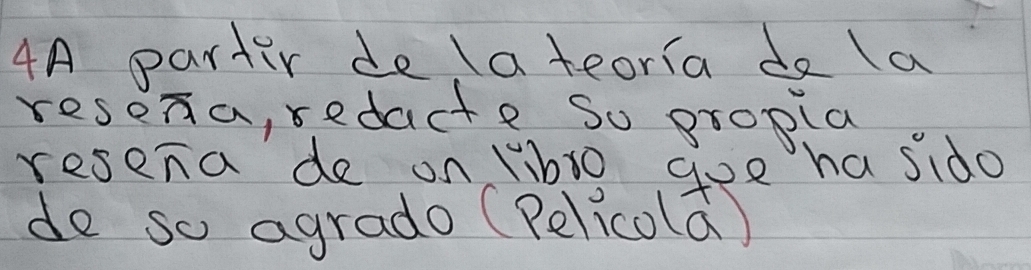 4A partir de la teoría de la
reseña, redacte su propia
reseña de un libro que ha sido
de su agrado (Película)